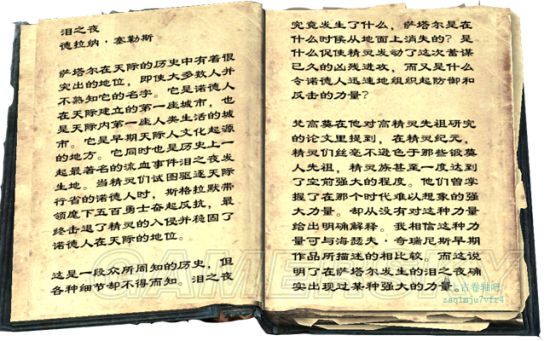 泪之夜
德拉纳·塞勒斯
萨塔尔在天际的历史中有着很
突出的地位，即使大多数人并
不熟知它的名字。它是诺德人
在天际建立的第一座城市，也
是天际内第一座人类生活的城
市。它是早期天际人文化起源
的地方。它同时也是历史上一
起最著名的流血事件泪之夜发
生地。当精灵们试图驱逐天际
行省的诺德人时，斯格拉默带
领麾下五百勇士奋起反抗，最
终击退了精灵的入侵并稳固了
诺德人在天际的地位。
这是一段众所周知的历史，但
各种细节却不得而知。泪之夜
究竟发生了什么，萨塔尔是在
什么时候从地面上消失的？是
什么促使精灵发动了这次蓄谋
已久的凶残进攻，而又是什么
令诺德人迅速地组织起防御和
反击的力量？
梵高莫在他对高精灵先祖研究
的论文里提到，在精灵纪元，
精灵们丝毫不逊色于那些锻莫
人先祖，精灵族甚至一度达到
了空前强大的程度。他们曾掌
握了在那个时代难以想象的强
大力量。却从没有对这种力量
给出明确解释。我相信这种力
量可与海瑟夫·奇瑞尼斯早期
作品所描述的相比较，而这说
明了在萨塔尔发生的泪之夜确
实出现过某种强大的力量。
GAMERSKY
上古卷轴吧
zaq1mju7vfr4